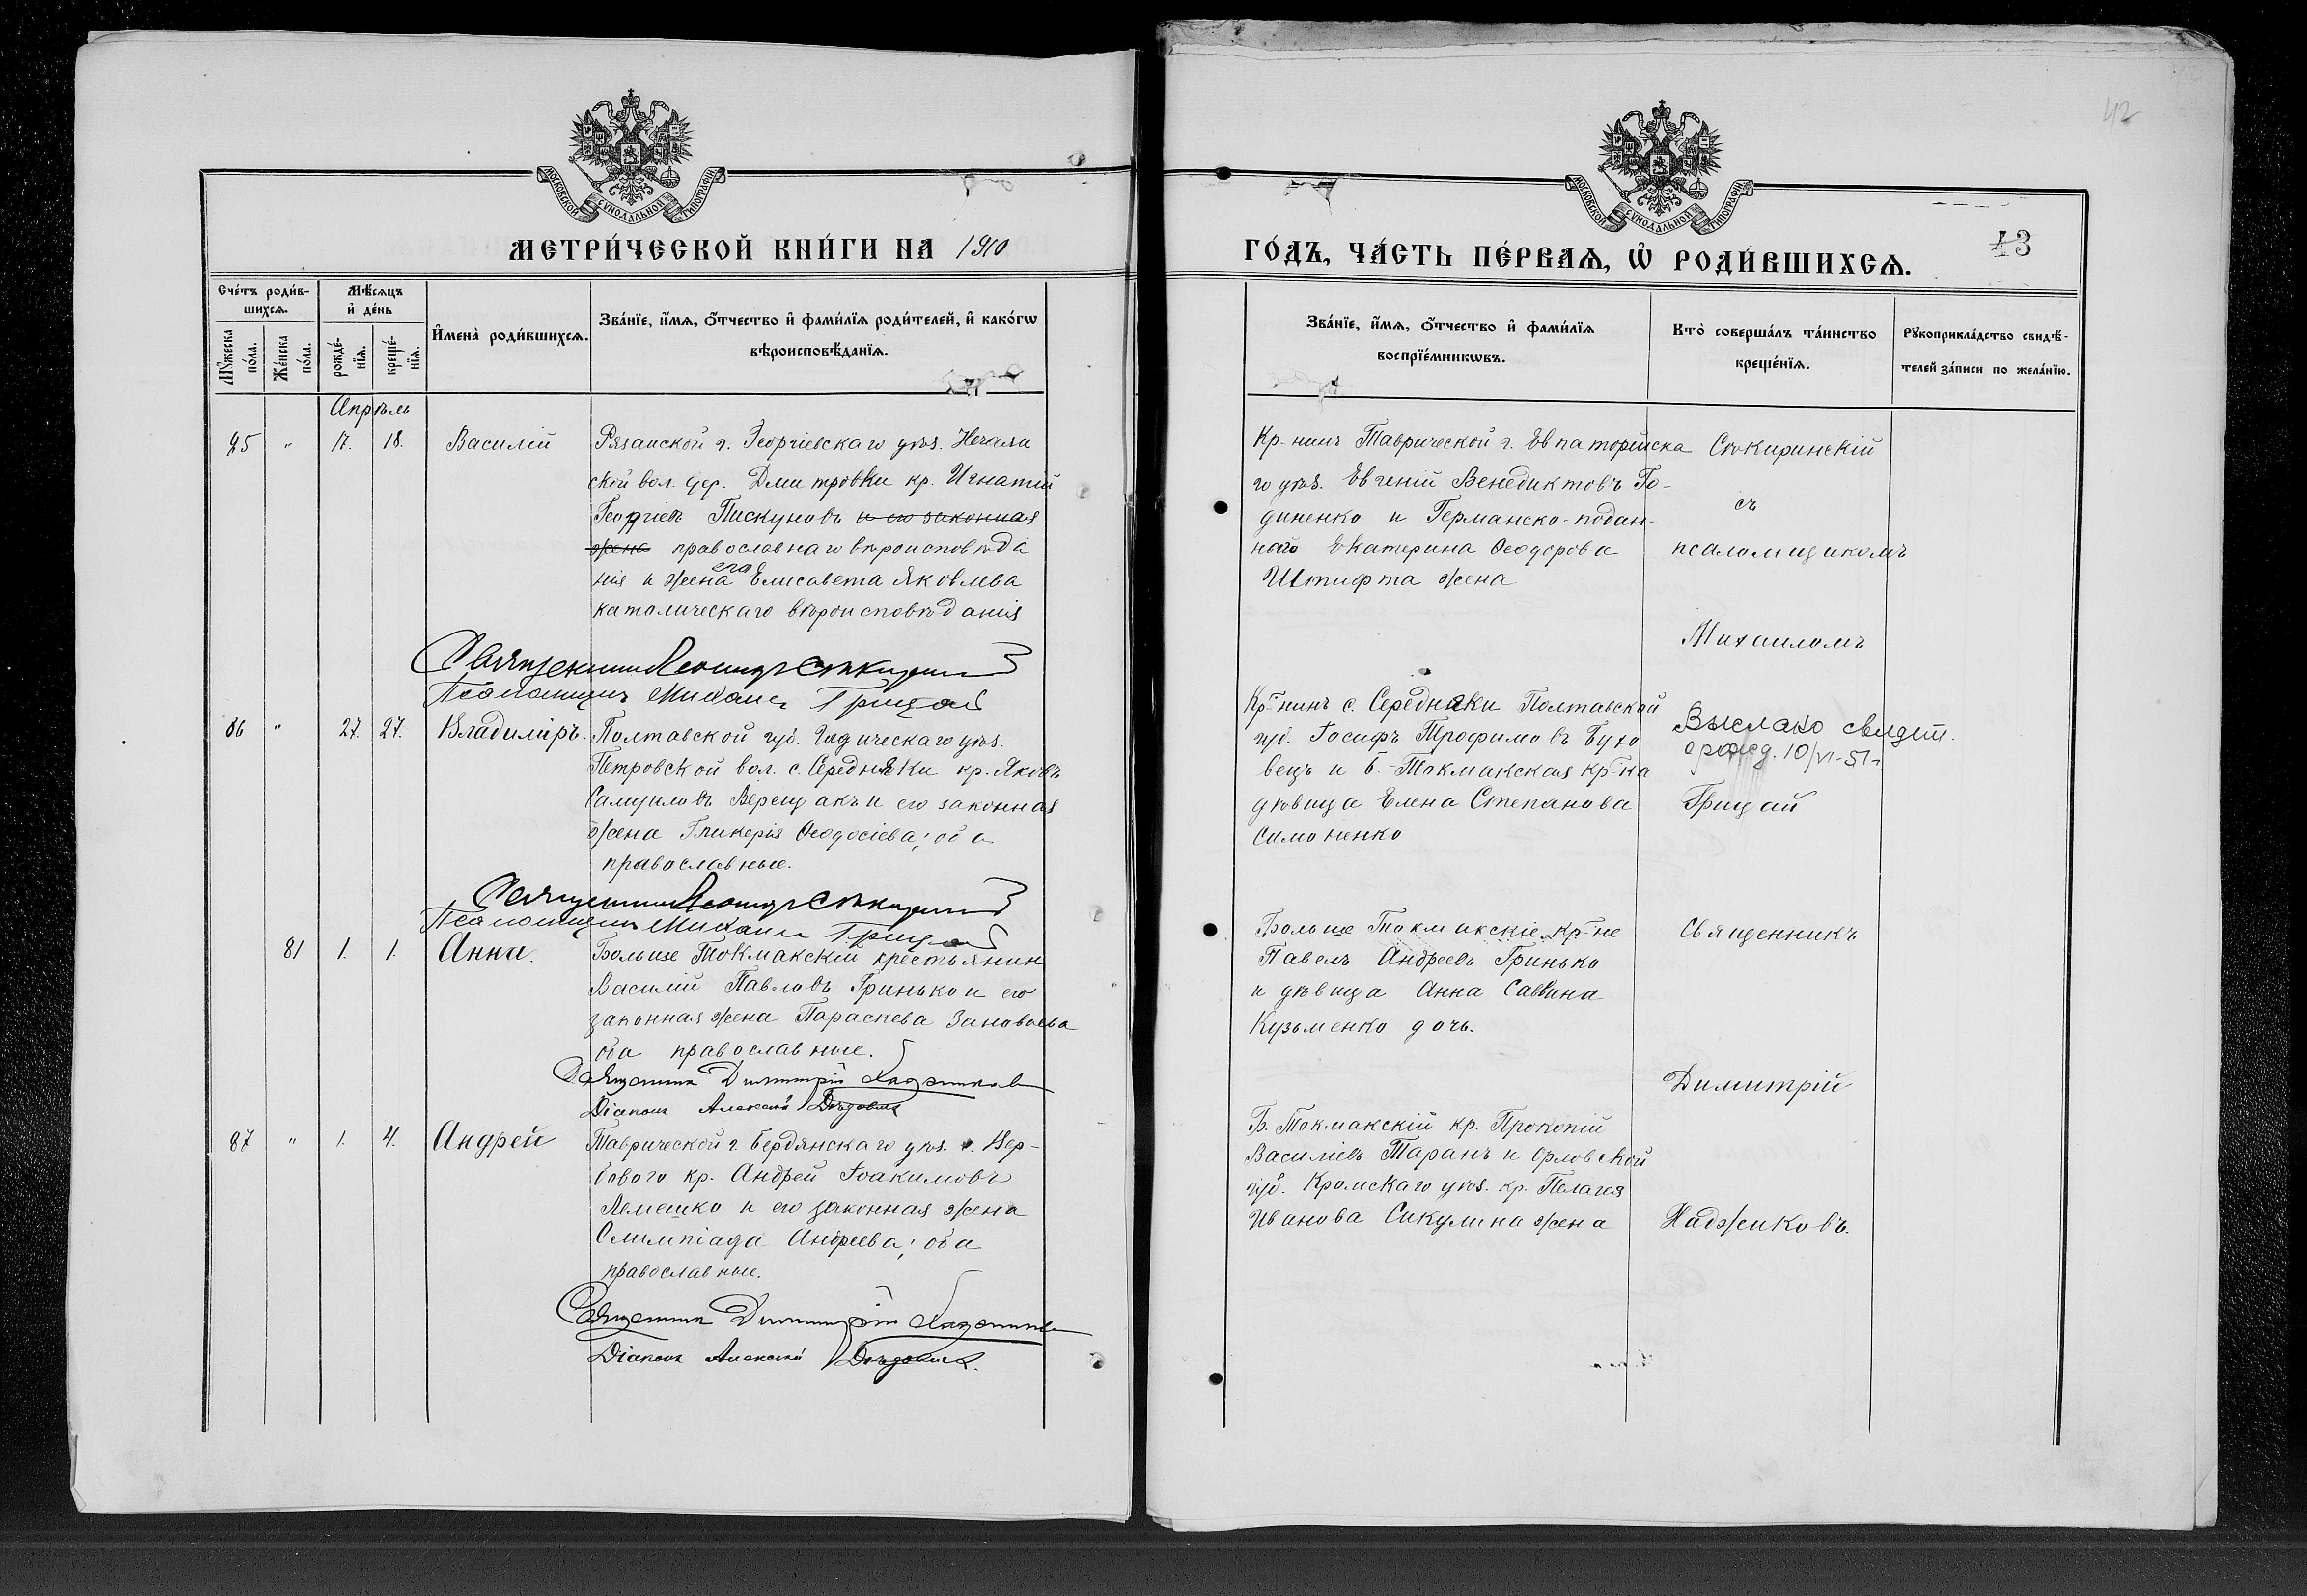 МОСКОВСКОЙ СѴНОДАЛЬНОЙ ТИПОГРАФІИ
МЕТРИ́ЧЕСКОЙ КНИ́ГИ НА 1910
Сче́тъ роди́в-
шихсѧ.
Мѣсяцъ
и҆ де́нь
Мꙋ́жеска
по́ла.
Же́нска
по́ла.
рожде́-
нїѧ.
креще́-
нїѧ.
И҆мена̀ роди́вшихсѧ.
Зва́нїе, и҆́мѧ, ѻ҆́тчество и҆ фами́лїѧ роди́телей, и҆ како́гѡ
вѣроисповѣ́данїѧ.
Апрѣль
85 " 17. 18. Василій
Рязанской г. Георгіевскаго уѣз. Нечаян
ской вол. дер. Дмитровки кр. Игнатій
Георгіевъ Пискуновъ и его законная
жена православнаго вѣроисповѣда
нія и жена его Елисавета Яковлева
католическаго вѣроисповѣданія
Священникъ Леонидъ Сѣкиринскій
Псаломщикъ Михаилъ Грицай
86 " 27. 27. Владиміръ.
Полтавской губ. Гадическаго уѣз.
Петровской вол. с. Середняки кр. Яковъ
Самуиловъ Верещакъ и его законная
жена Гликерія Ѳеодосіева; оба
православные.
Священникъ Леонидъ Сѣкиринскій
Псаломщикъ Михаилъ Грицай
81 1. 1. Анна.
Больше Токмакскій крестьянин
Василій Павловъ Гринько и его
законная жена Параскева Зиновьева
оба православные.
Священникъ Димитрій Хадженковъ
Діаконъ Алексій
87 " 1. 4. Андрей
Таврической г. Бердянскаго уѣз. с. Вер-
бового кр. Андрей Іоакимовъ
Лемешко и его законная жена
Олимпіада Андреева; оба
православные.
Священникъ Димитрій Хадженковъ
Діаконъ Алексій
42
МОСКОВСКОЙ СѴНОДАЛЬНОЙ ТИПОГРАФІИ
ГО́ДЪ, ЧА́СТЬ ПЕ́РВАѦ, Ѡ҆ РОДИ́ВШИХСѦ.
43
Зва́нїе, и҆́мѧ, ѻ҆́тчество и҆ фами́лїѧ
воспрїе́мникѡвъ.
Кто̀ соверша́лъ та́инство
креще́нїѧ.
Рꙋкоприкла́дство свидѣ́-
телей за́писи по жела́нїю.
Кр-нинъ Таврической г. Евпаторійска
го уѣз. Евгеній Венедиктовъ Го-
диненко и Германско-поддан-
ного Екатерина Ѳеодорова
Штифта жена
Сѣкиринскій
съ
псаломщикомъ
Михаиломъ
Кр-нинъ с. Середняки Полтавской
губ. Іосифъ Трофимовъ Бухо
вецъ и Б.-Токмакская кр-ка
дѣвица Елена Степанова
Симоненко
Выслано свидет.
о рожд. 10/VI-51 г.
Грицай
Больше Токмакскіе кр-не
Павелъ Андреевъ Гринько
и дѣвица Анна Саввина
Кузьменко дочь.
Священникъ
Димитрій
Б. Токмакскій кр. Прокопій
Василіевъ Таранъ и Орловской
губ. Кромскаго уѣз. кр. Пелагея
Иванова Сикулина жена
Хадженковъ.